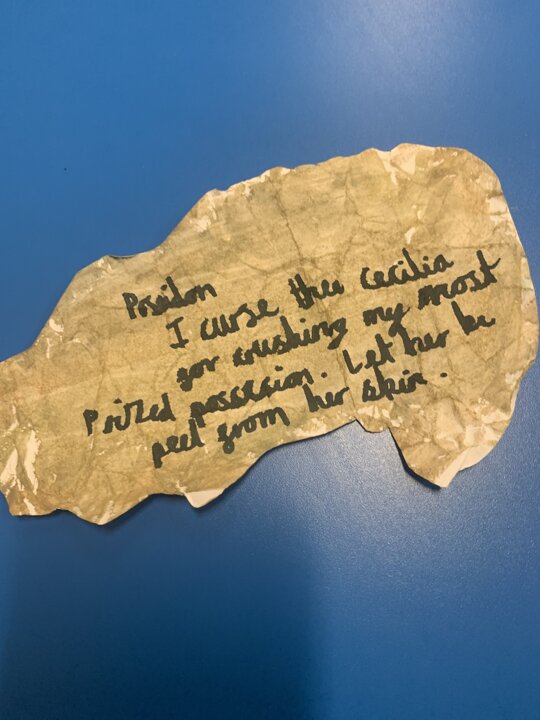 Poseidon
I curse thee cecilia
for crushing my most
Prized possesion. Let her be
peel from her skin.